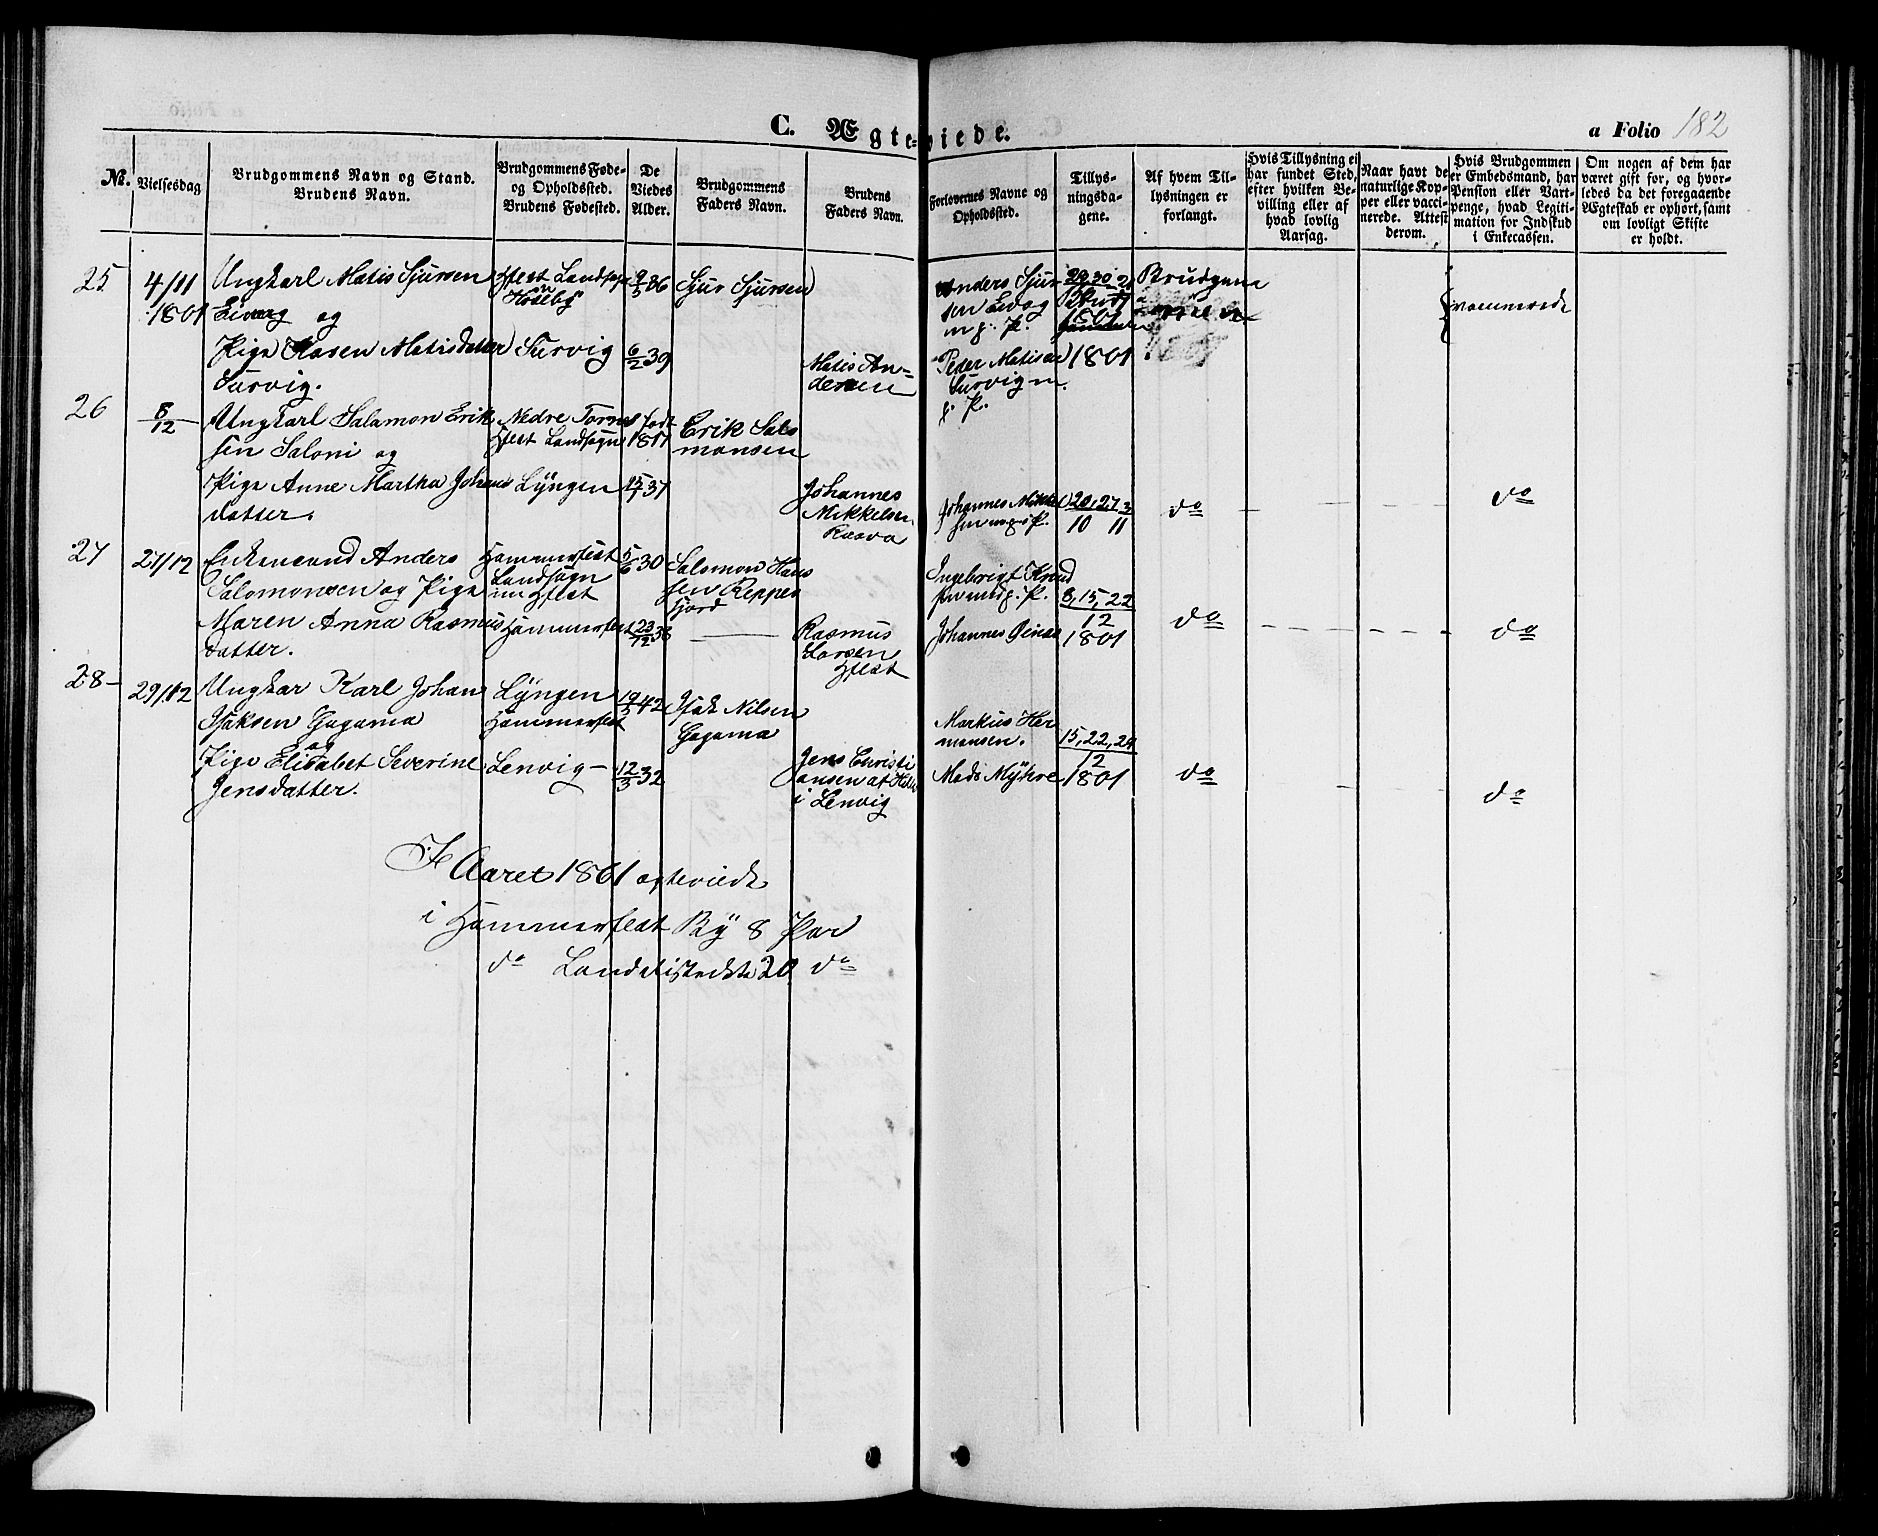 C. Ægteviede.
a Folio 182
No.
Vielsesdag
Brudgommens Navn og Stand.
Brudens Navn.
Brudgommens Føde-
og Opholdssted.
Brudens Fødested.
De
Viedes
Alder.
Brudgommens
Faders Navn.
Brudens
Faders Navn.
Forlovernes Navne og
Opholdssted.
Tillys-
ningsda-
gene.
Af hvem Til-
lysningen er
forlangt.
Hvis Tillysning ei
har fundet Sted,
efter hvilken Be-
villing eller af
hvad lovlig
Aarsag.
Naar havt de
naturlige Kop-
per eller vacci-
nerede. Attest
derom.
Hvis Brudgommen
er Embedsmand, har
Pension eller Vart-
penge, hvad Legiti-
mation for Indskud
i Enkecassen.
Om nogen af dem har
været gift før, og hvor-
ledes da det foregaaende
Ægteskab er ophørt, samt
om lovligt Skifte
er holdt.
25
4/11
1861
Ungkarl Matis Sjursen
og
Pige Karen Matisdatter
Survig.
Hfest Landsogn
Survig
9/5 36
6/2 39
Sjur Sjursen
Matis An=
dersen
Anders Sjur
sen
m. p. P.
Peder Matisen
Survig m.
p. P.
1861
Brudgom
26
8/12
Ungkarl Salamon Erik
sen Saloni og
Pige Anne Martha Johans
datter.
Nedre Torne
Hfest Landsogn
Lÿngen
født
1817
15/1 37
Erik Salo
monsen
Johannes
Mikkelsen
Johannes Mikkel
sen m. p. P.
20, 27, 3
10 11
do
do
27
27/12
Enkemand Anders
Salomonsen og Pige
Maren Anna Rasmus
datter.
Hammerfest
Landsogn
Hfest
Hammerfest
5/6 30
23/12 38
Salomon Hans
sen Repper
fjord
Rasmus
Larsen
Hfest
Ingebrigt Knud
sen m. p. P.
Johannes
8, 15, 22
12
1861
do
do
28
29/12
Ungkar Karl Johan
Isaksen Gagama
og
Pige Elisabet Severine
Jensdatter.
Lÿngen
Hammerfest
Lenvig
19/5 42
12/3 32
Isak Nilsen
Gagama
Jens Christi
ansen af
i Lenvig
Markus Her
mansen.
Mads Mÿhre
15, 22, 29
12
1861
do
do
I Aaret 1861 egteviede
i Hammerfest Bÿ 8 Par
do Landdistrikt 20 do